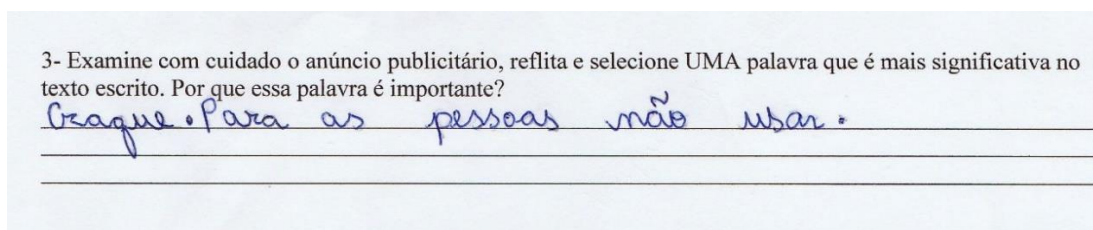 3- Examine com cuidado o anúncio publicitário, reflita e selecione UMA palavra que é mais significativa no
texto escrito. Por que essa palavra é importante?
Craque. Para as pessoas não usar.